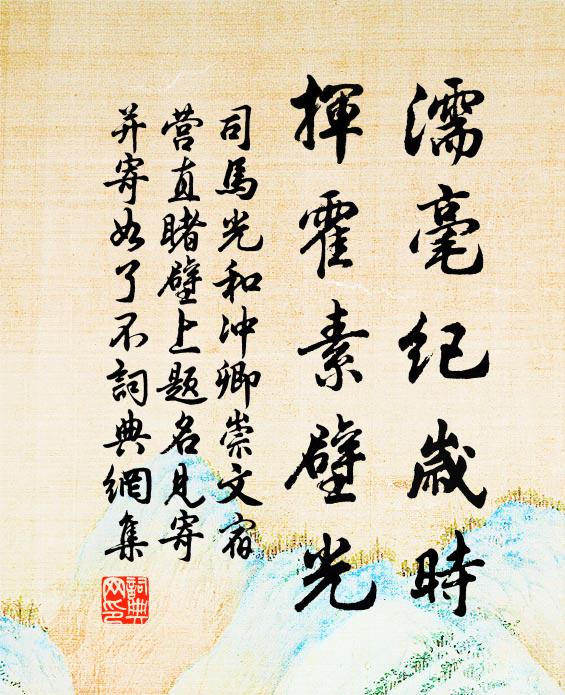 濡毫紀歲時
揮霍素壁光
司馬光和冲卿崇文宿
营直睹壁上题名见寄
并寄如了不詞典網集
詞典